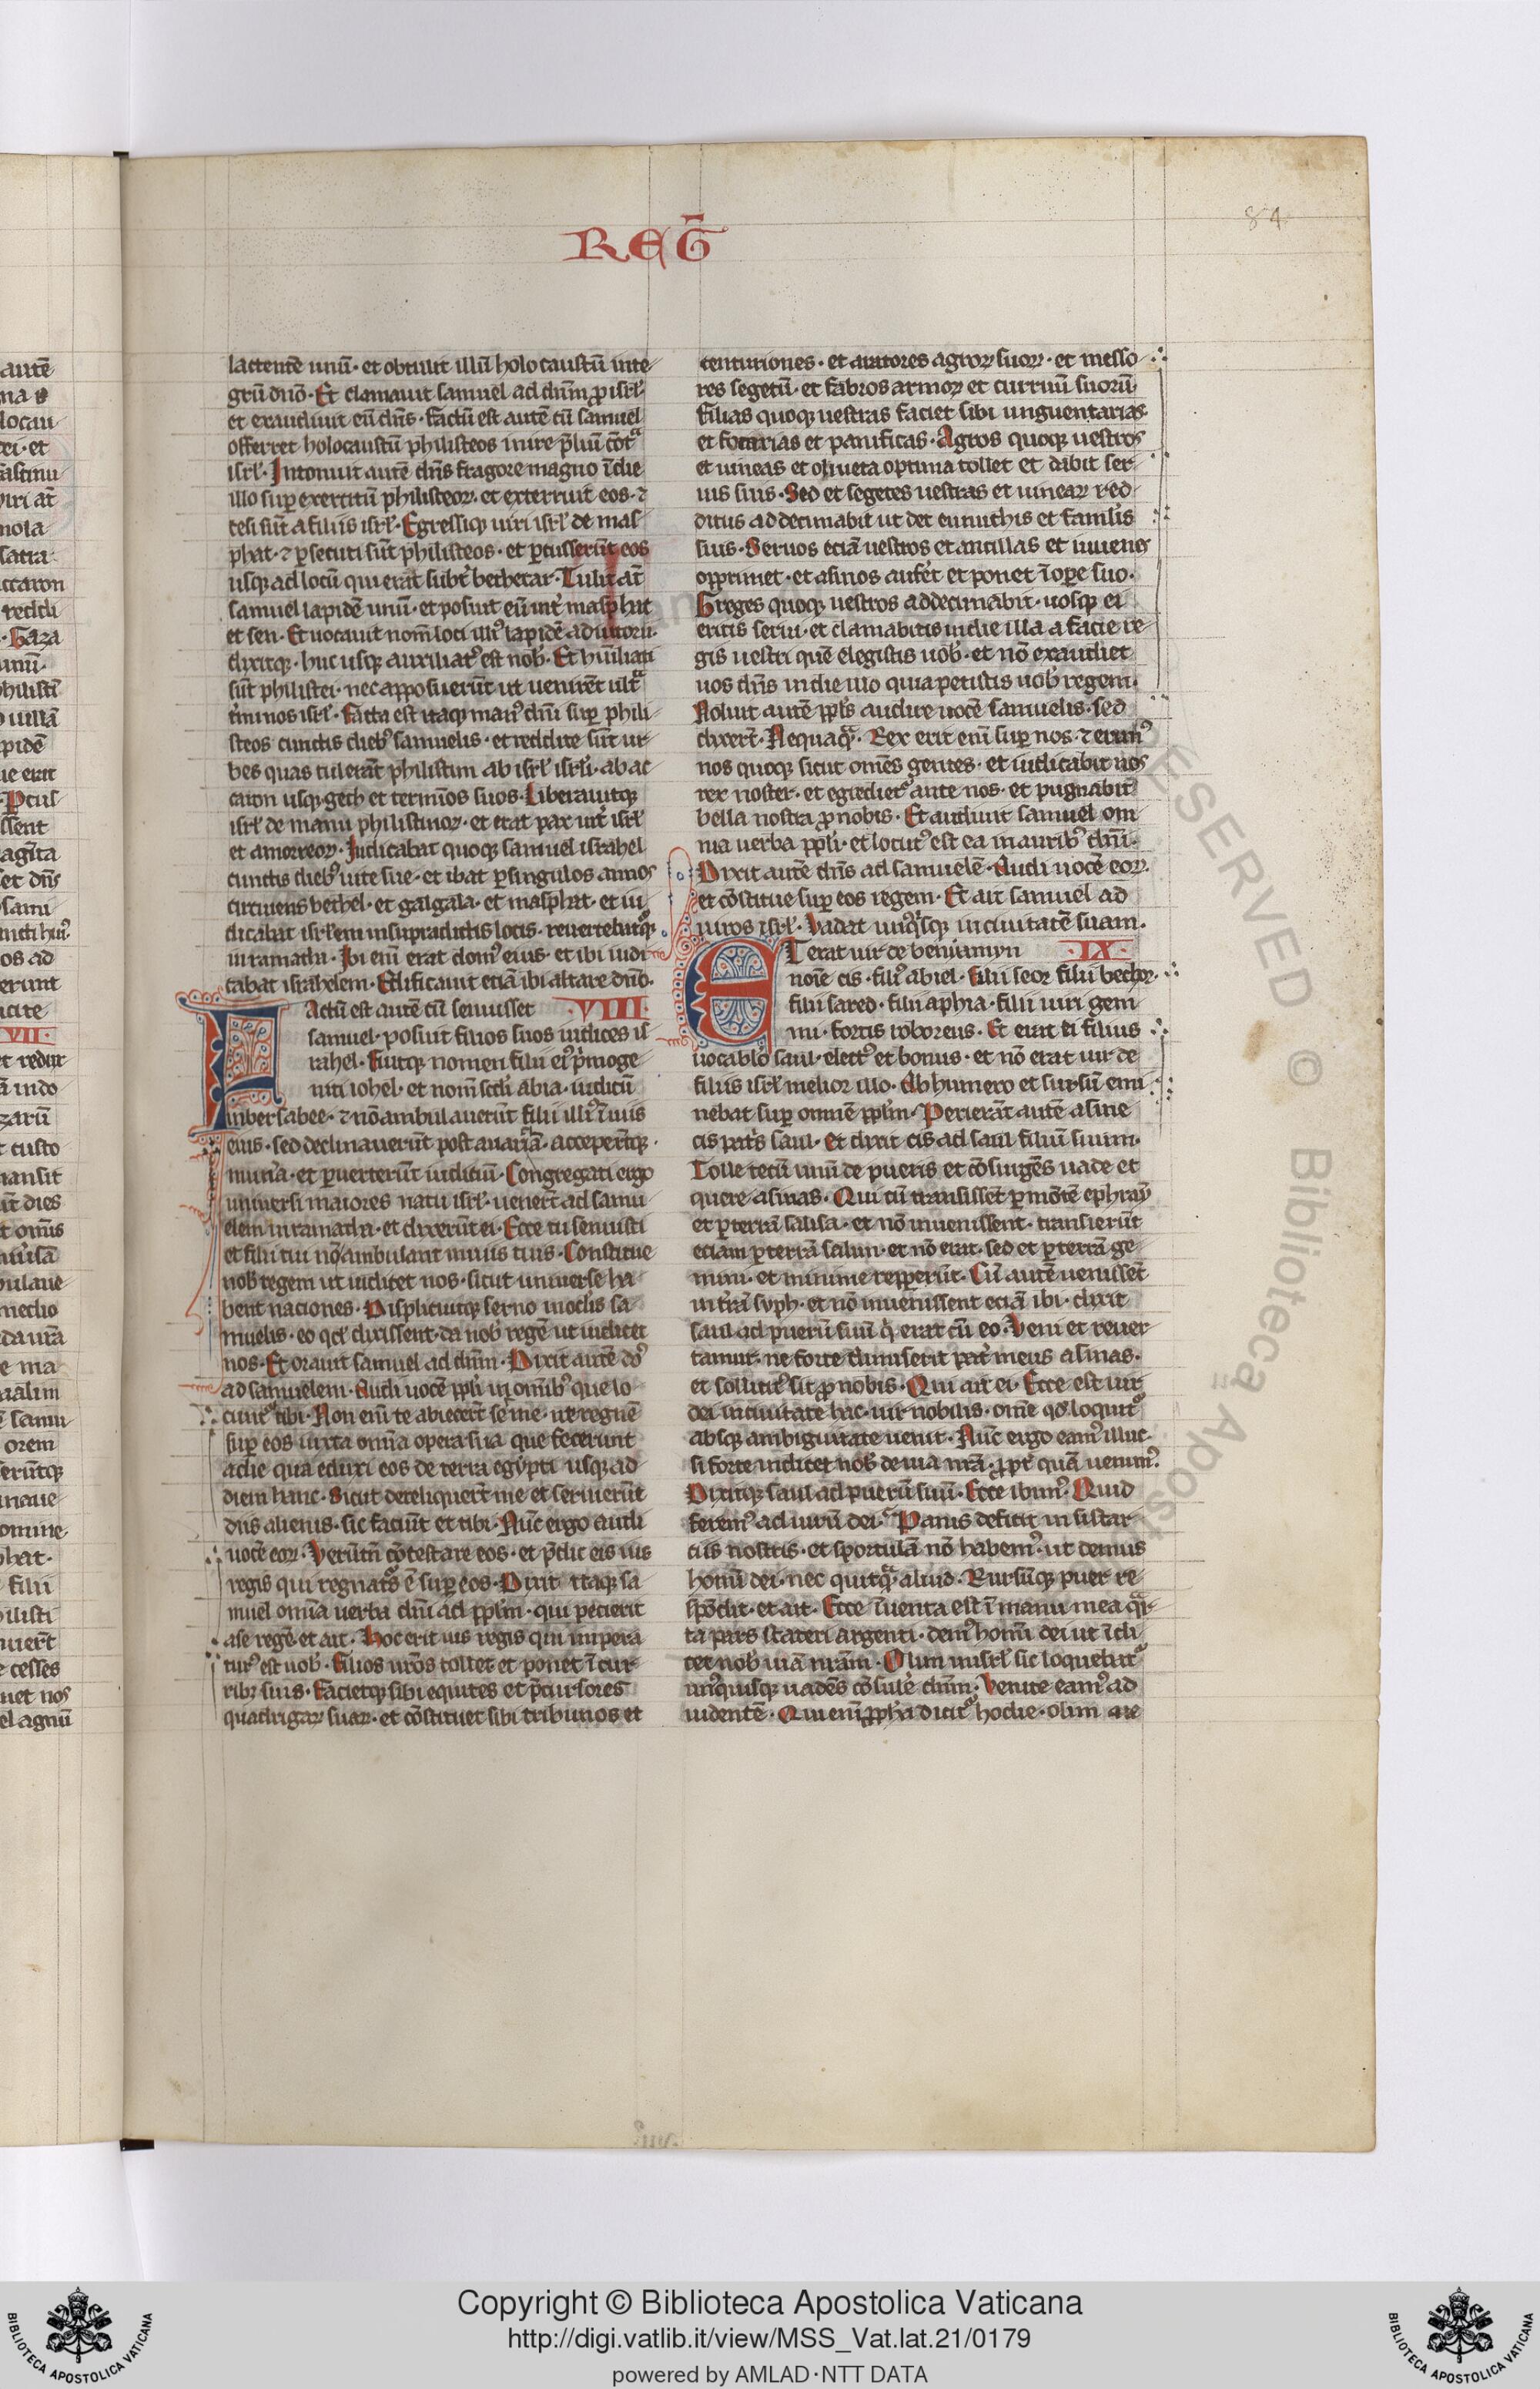 REG̅
84
lactentē unū · et obtulit illū holocaustū inte
grū dn̄o · Et clamauit samuel ad dn̄m ꝓ isrl̓
et exaudiuit eū dn̄s · factū est autē cū samuel
offerret holocaustū philisteos inire p̄liū cōt̓ᵃ
isrl̓ · Intonuit autē dn̄s fragore magno ī die
illo suꝑ exercitū philisteoꝝ · et exterruit eos · ⁊
cesi sūt a filiis isrl̓ · Egressiqꝫ uiri isrl̓ de mas
phat · ⁊ ꝑsecuti sūt philisteos · et ꝑcusserūt eos
usqꝫ ad locū qui erat subt̓ bethecar · Tulit at̄
samuel lapidē unū · et posuit eū int̓ masphat
et sen · Et uocauit nom̄ loci illi᷒ lapidē adiutorii ·
dixitqꝫ · huc usqꝫ auxiliat᷒ est nob̓ · Et humiliati
sūt philistei · nec apposuerūt ut uenirēt ult̓ᵃ
t̓minos isrl̓ · Facta est itaqꝫ man᷒ dn̄i suꝑ phili
steos cunctis dieb᷒ samuelis · et reddite sūt ur
bes quas tulerāt philistim ab isrl̓ isrl̓i · ab ac
caron usqꝫ geth et termīos suos · Liberauitqꝫ
isrl̓ de manu philistinoꝝ · et erat pax int̓ isrl̓
et amorreoꝝ · Iudicabat quoqꝫ samuel israhel
cunctis dieb᷒ uite sue · et ibat ꝑ singulos annos
circuiens bethel · et galgala · et masphat · et iu
dicabat isrl̓em in supradictis locis · reuertebat̉qꝫ
in ramatha · Ibi eni̅ erat dom᷒ eius · et ibi iudi
cabat israhelem · Edificauit eciā ibi altare dn̄o ·
Factū est autē cū senuisset · VIII ·
samuel · posuit filios suos iudices is
rahel · Fuitqꝫ nomen filii ei᷒ p̓moge
niti iohel · et nom̄ scd̓i abia · iudicū
in bersabee · ⁊ nō ambulauerūt filii illi᷒ ī uiis
eius · sed declinauerūt post auariciā · acceperūtqꝫ ·
mun̓a · et ꝑuerterūt iudiciū · Congregati ergo
uniuersi maiores natu isrl̓ · uenerūt ad samu
elem in ramatha · et dixerūt ei · Ecce tu senuisti
et filii tui nō ambulant in uiis tuis · Constitue
nob̓ regem ut iudicet nos · sicut uniuerse ha
bent naciones · Displicuitqꝫ sermo in oc̓lis sa
muelis · eo qd̓ dixissent · da nob̓ regē ut iudicet
nos · Et orauit samuel ad dn̄m · Dixit autē dn̄s
ad samuelem · Audi uocē ppl̓i in om̄ib᷒ que lo
cunt̉ tibi · Non eni̅ te abiecer̄t s̄ me · ne regnē
suꝑ eos iuxta om̄ia opera sua que fecerunt
a die qua eduxi eos de terra egypti usqꝫ ad
diem hanc · Sicut dereliquer̄t me et seruierūt
diis alienis · sic faciūt et tibi · Nūc ergo audi
uocē eoꝝ · Verūtn̄ cōtestare eos · et p̄dic eis ius
regis qui regnat᷒ ē suꝑ eos · Dixit itaqꝫ sa
muel om̄ia uerba dn̄i ad ppl̓m · qui pecierāt
a se regē · et ait · Hoc erit ius regis qui impera
tur᷒ est uob̓ · Filios ur̄os tollet et ponet ī cur
ribꝫ suis · Facietqꝫ sibi equites et p̄cursores
quadrigaꝝ suaꝝ · et cōstituet sibi tribunos et
centuriones · et aratores agroꝝ suoꝝ · et messo
res segetū · et fabros armoꝝ et curruū suorū ·
Filias quoqꝫ uestras faciet sibi unguentarias
et focarias et panificas · Agros quoqꝫ uestros
et uineas et oliueta optima tollet et dabit ser
uis suis · Sed et segetes uestras et uineaꝝ red
ditus addecimabit ut det eunuchis et famlis
suis · Seruos eciā uestros et ancillas et iuuenes
opprimet · et asinos aufer̓t et ponet ī oꝑe suo ·
Greges quoqꝫ uestros addecimabit · uosqꝫ ei
eritis serui · et clamabitis in die illa a facie re
gis uestri quē elegistis uob̓ · et nō exaudiet
uos dn̄s in die illo quia petistis uob̓ regem ·
Noluit autē ppl̓s audire uocē samuelis · sed
dixer̄t · Nequaq̓ᵃ · Rex erit eni̅ suꝑ nos · ⁊ erim᷒
nos quoqꝫ sicut omēs gentes · et iudicabit nos
rex noster · et egrediet̉ ante nos · et pugnabit
bella nostra ꝓ nobis · Et audiuit samuel om
nia uerba ppl̓i · et locut᷒ est ea in aurib᷒ dn̄i ·
Dixit autē dn̄s ad samuelē · Audi uocē eoꝝ ·
et cōstitue suꝑ eos regem · Et ait samuel ad
uiros isrl̓ · Vadat unq̓sqꝫ in ciuitatē suam ·
Et erat uir de beniamyn · IX ·
noīe cis · fili᷒ abiel · filii seor filii bechor ·
filii sared · filii aphia · filii uiri gemi
ni · fortis roboreus · Et erat ei filius
uocab̓lo saul · elect᷒ et bonus · et nō erat uir de
filiis isrl̓ melior illo · Ab humero et sursū emi
nebat suꝑ omnē ppl̓m · Perierāt autē asine
cis pat̓s saul · et dixit cis ad saul filiū suum ·
Tolle tecū unū de pueris et cōsurgēs uade et
quere asinas · Qui cū transissēt ꝑ mōtē ephraȳ
et ꝑ terrā salisa · et nō inuenissent · transierūt
eciam ꝑ terrā salim · et nō erāt · sed et ꝑ terrā ge
mini · et minime repperūt · Cū autē uenissēt
in t̓rā suph · et nō inuenissent eciā ibi · dixit
saul ad puerū suū q̓ erat cū eo · Veni et reuer
tamur · ne forte dimiserit pat̓ meus asinas ·
et sollicit᷒ sit ꝓ nobis · Qui ait ei · Ecce est uir
dei in ciuitate hac · uir nobilis · ome qd̓ loquit̉
absqꝫ ambiguitate uenit · Nūc ergo eam᷒ illuc ·
si forte indicet nob̓ de uia nrā · ꝓpt̓ quā uenim᷒ ·
Dixitqꝫ saul ad puerū suū · Ecce ibim᷒ · Quid
ferem᷒ ad uirū dei · Panis deficit in sistar
ciis nostris · et sportulā nō habem᷒ · ut demus
homī dei · nec quitq̓ᵃ aliud · Rursūqꝫ puer re
spōdit · et ait · Ecce īuenta est ī manu mea q̓ᵃr
ta pars stateri argenti · dem᷒ homī dei ut īdi
cet nob̓ uiā nrām · Olim in isrl̓ sic loquebat̉
un᷒quisqꝫ uadēs cōsule̓ dn̄m · Venite eam᷒ ad
uidentē · Qui eni̅ ꝓpha dicit̉ hodie · olim
Copyright © Biblioteca Apostolica Vaticana
http://digi.vatlib.it/view/MSS_Vat.lat.21/0179
powered by AMLAD·NTT DATA
BIBLIOTECA APOSTOLICA VATICANA
BIBLIOTECA APOSTOLICA VATICANA